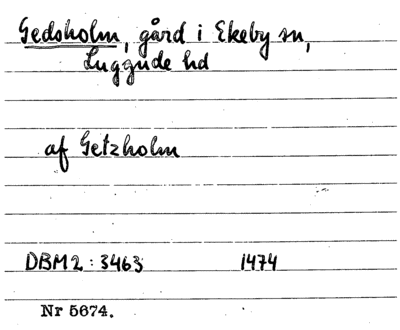 Gedsholm, gård i Ekeby sn,
Luggude hd
af Getzholm
DBM2: 3463 1474
Nr 5674.